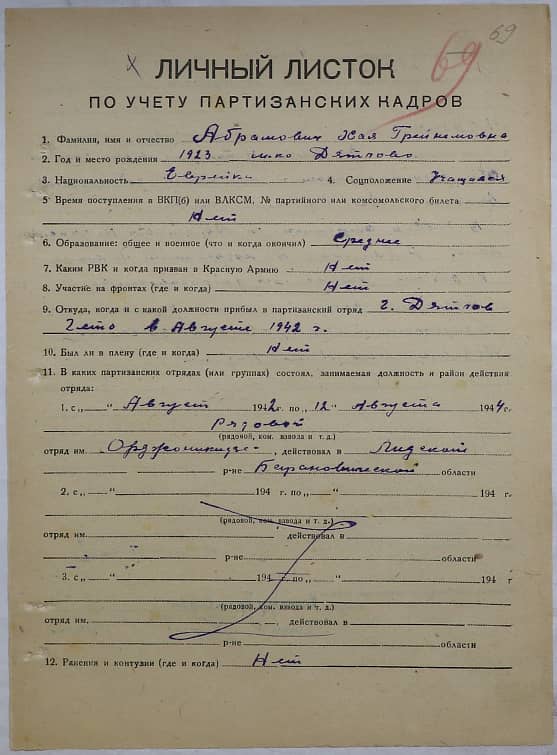 69
69
ЛИЧНЫЙ ЛИСТОК
ПО УЧЕТУ ПАРТИЗАНСКИХ КАДРОВ
1. Фамилия, имя и отчество Абрамович Хая
2. Год и место рождения 1923 Дятлово
3. Национальность Еврейка 4. Соцположение Учащаяся
5 Время поступления в ВКП(б) или ВЛКСМ, № партийного или комсомольского билета
Нет
6. Образование: общее и военное (что и когда окончил) Среднее
7. Каким РВК и когда призван в Красную Армию Нет
8. Участие на фронтах (где и когда) Нет
9. Откуда, когда и с какой должности прибыл в партизанский отряд г. Дятлов
Гето в Августе 1942 г.
10. Был ли в плену (где и когда) Нет
11. В каких партизанских отрядах (или группах) состоял, занимаемая должность и район действия
отряда:
1. с „ “ Август 1942 г. по „12“ Августа 1944 г.
Рядовой
(рядовой, ком. взвода и т. д.)
отряд им. Орджоникидзе, действовал в Лидской
р-не Барановической области
2. с „ “ 194 г. по „ “ 194 г.
(рядовой, ком. взвода и т. д.)
отряд им. действовал в
р-не области
3. с „ “ 194 г. по „ “ 194 г
(рядовой, ком. взвода и т. д.)
отряд им. действовал в
р-не области
12. Ранения и контузии (где и когда) Нет